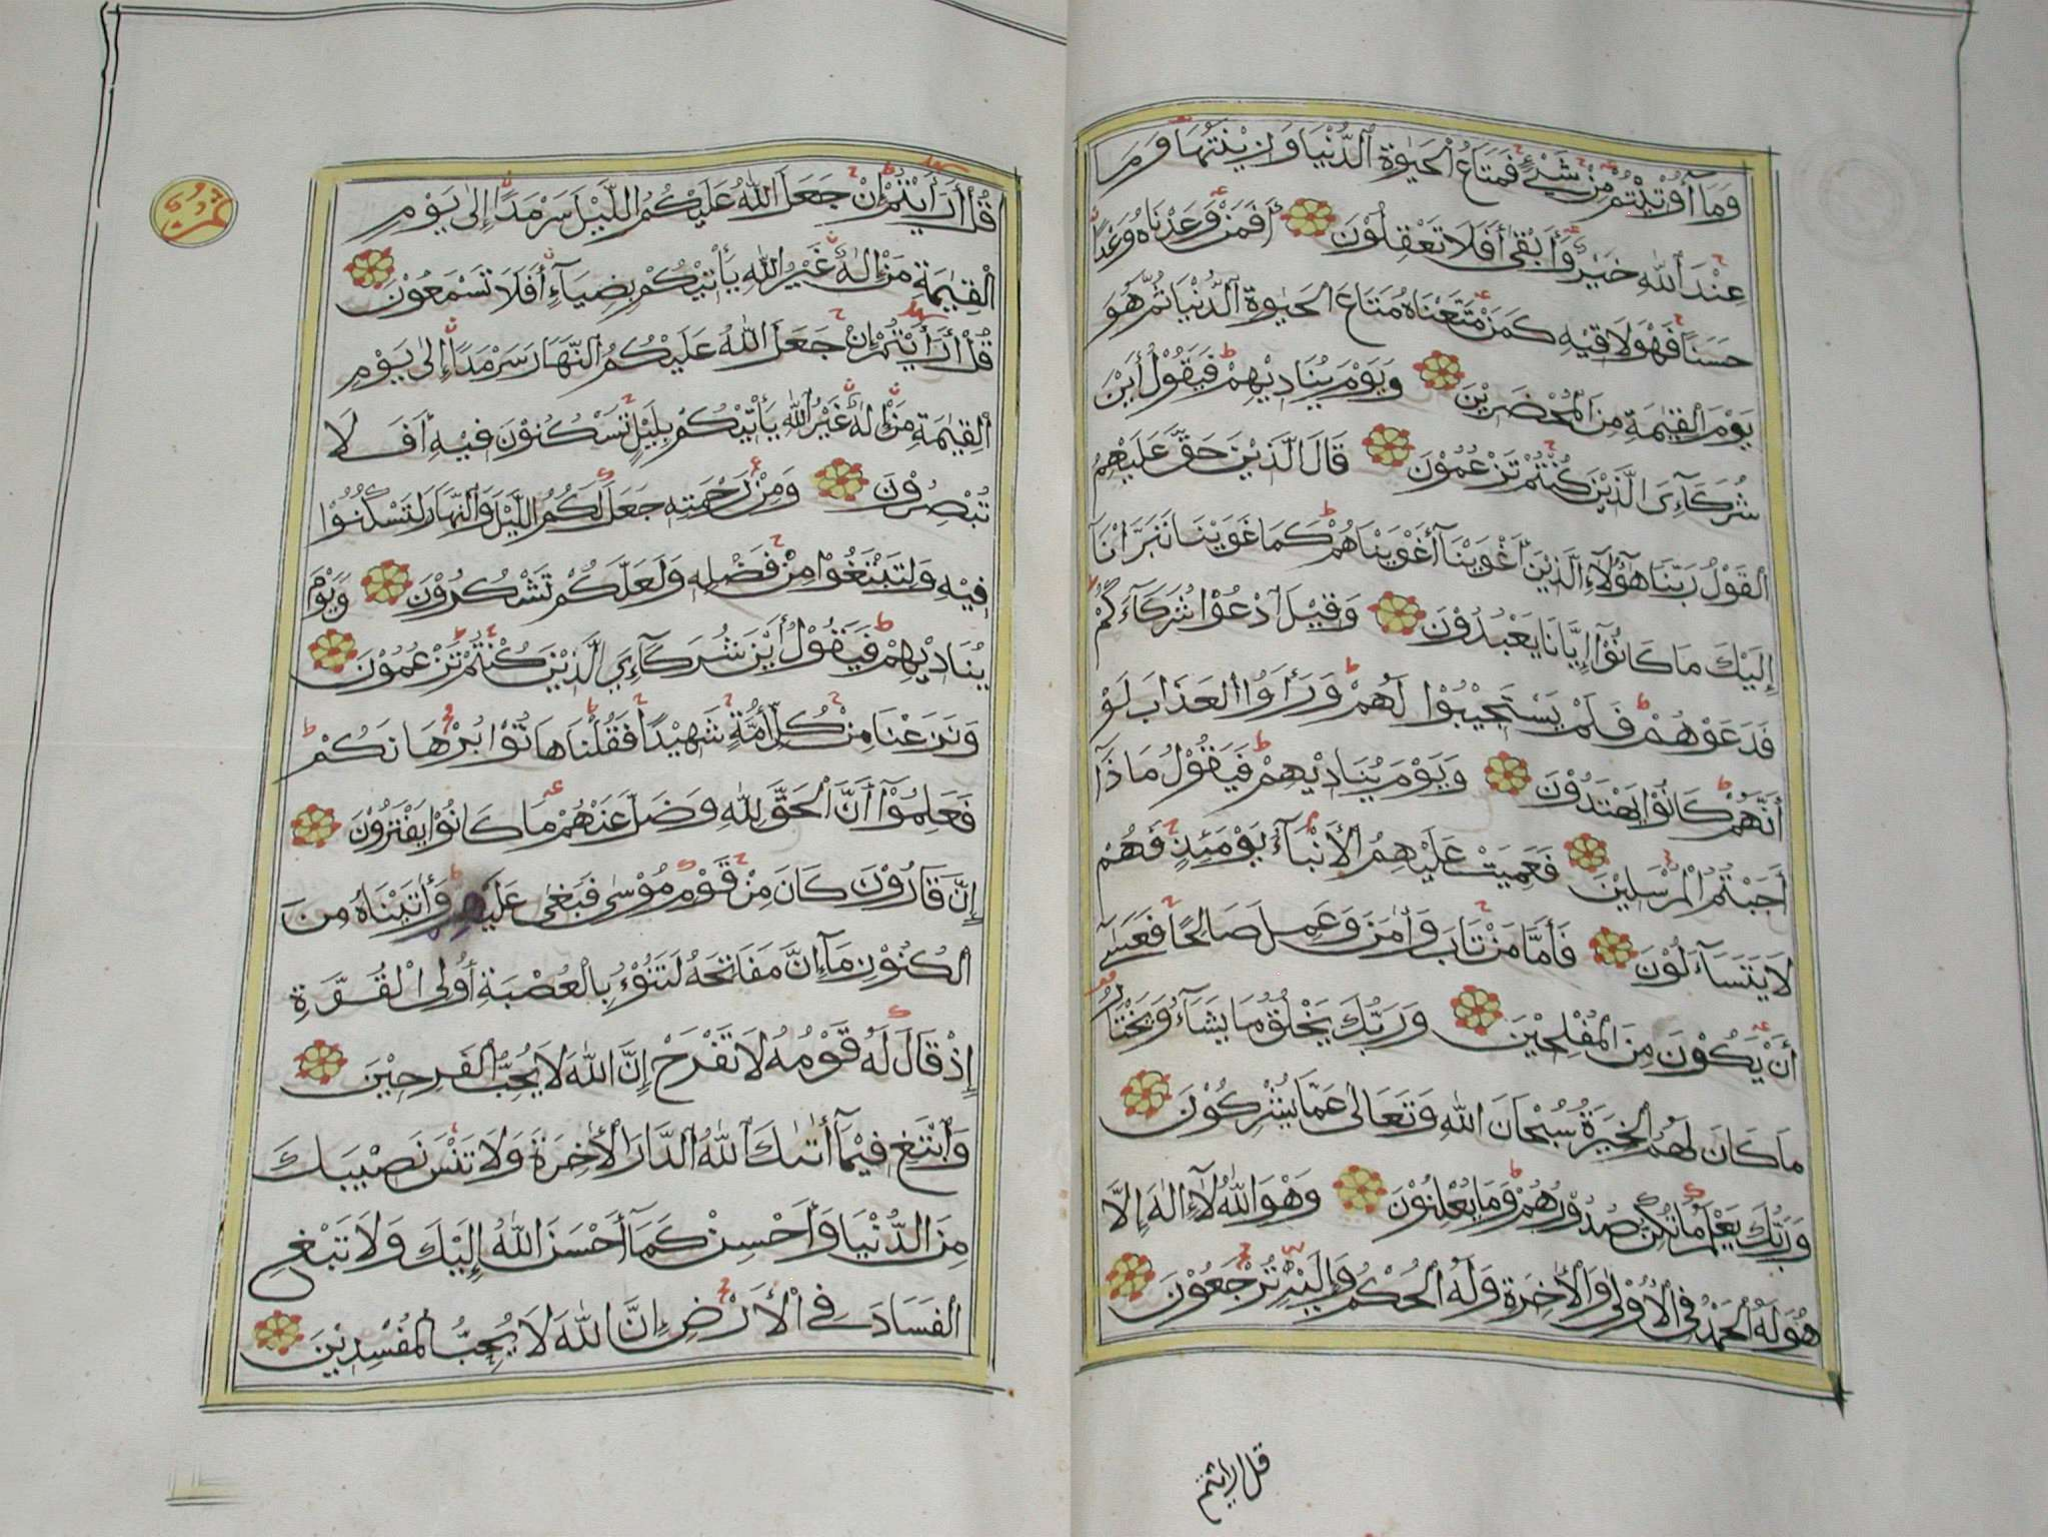 وَمَا أُوتِيتُمْ مِنْ شَيْءٍ فَمَتَاعُ الْحَيٰوةِ الدُّنْيَا وَزِينَتُهَا وَمَا
عِنْدَ اللهِ خَيْرٌ وَأَبْقَىٰ أَفَلَا تَعْقِلُوْنَ أَفَمَنْ وَعَدْنَاهُ وَعْدًا
حَسَنًا فَهُوَ لَاقِيْهِ كَمَنْ مَتَّعْنَاهُ مَتَاعَ الْحَيٰوةِ الدُّنْيَا ثُمَّ هُوَ
يَوْمَ الْقِيٰمَةِ مِنَ الْمُحْضَرِيْنَ وَيَوْمَ يُنَادِيْهِمْ فَيَقُوْلُ أَيْنَ
شُرَكَآءِيَ الَّذِيْنَ كُنْتُمْ تَزْعُمُوْنَ قَالَ الَّذِيْنَ حَقَّ عَلَيْهِمُ
الْقَوْلُ رَبَّنَا هٰؤُلَآءِ الَّذِيْنَ أَغْوَيْنَا أَغْوَيْنَاهُمْ كَمَا غَوَيْنَا تَبَرَّأْنَا
إِلَيْكَ مَا كَانُوْآ إِيَّانَا يَعْبُدُوْنَ وَقِيْلَ ادْعُوْا شُرَكَآءَكُمْ
فَدَعَوْهُمْ فَلَمْ يَسْتَجِيْبُوْا لَهُمْ وَرَأَوُا الْعَذَابَ لَوْ
أَنَّهُمْ كَانُوْا يَهْتَدُوْنَ وَيَوْمَ يُنَادِيْهِمْ فَيَقُوْلُ مَاذَآ
أَجَبْتُمُ الْمُرْسَلِيْنَ فَعَمِيَتْ عَلَيْهِمُ الْأَنْبَآءُ يَوْمَئِذٍ فَهُمْ
لَا يَتَسَآءَلُوْنَ فَأَمَّا مَنْ تَابَ وَأٰمَنَ وَعَمِلَ صَالِحًا فَعَسَىٰ
أَنْ يَكُوْنَ مِنَ الْمُفْلِحِيْنَ وَرَبُّكَ يَخْلُقُ مَا يَشَآءُ وَيَخْتَارُ
مَا كَانَ لَهُمُ الْخِيَرَةُ سُبْحَانَ اللهِ وَتَعَالَىٰ عَمَّا يُشْرِكُوْنَ
وَرَبُّكَ يَعْلَمُ مَا تُكِنُّ صُدُوْرُهُمْ وَمَا يُعْلِنُوْنَ وَهُوَ اللهُ لَآ إِلٰهَ إِلَّا
هُوَ لَهُ الْحَمْدُ فِي الْأُوْلَىٰ وَالْأٰخِرَةِ وَلَهُ الْحُكْمُ وَإِلَيْهِ تُرْجَعُوْنَ
قل ارايتم
قُلْ أَرَأَيْتُمْ إِنْ جَعَلَ اللهُ عَلَيْكُمُ اللَّيْلَ سَرْمَدًا إِلَىٰ يَوْمِ
الْقِيٰمَةِ مَنْ إِلٰهٌ غَيْرُ اللهِ يَأْتِيْكُمْ بِضِيَآءٍ أَفَلَا تَسْمَعُوْنَ
قُلْ أَرَأَيْتُمْ إِنْ جَعَلَ اللهُ عَلَيْكُمُ النَّهَارَ سَرْمَدًا إِلَىٰ يَوْمِ
الْقِيٰمَةِ مَنْ إِلٰهٌ غَيْرُ اللهِ يَأْتِيْكُمْ بِلَيْلٍ تَسْكُنُوْنَ فِيْهِ أَفَلَا
تُبْصِرُوْنَ وَمِنْ رَحْمَتِهِ جَعَلَ لَكُمُ اللَّيْلَ وَالنَّهَارَ لِتَسْكُنُوْا
فِيْهِ وَلِتَبْتَغُوْا مِنْ فَضْلِهِ وَلَعَلَّكُمْ تَشْكُرُوْنَ وَيَوْمَ
يُنَادِيْهِمْ فَيَقُوْلُ أَيْنَ شُرَكَآءِيَ الَّذِيْنَ كُنْتُمْ تَزْعُمُوْنَ
وَنَزَعْنَا مِنْ كُلِّ أُمَّةٍ شَهِيْدًا فَقُلْنَا هَاتُوْا بُرْهَانَكُمْ
فَعَلِمُوْآ أَنَّ الْحَقَّ لِلّٰهِ وَضَلَّ عَنْهُمْ مَا كَانُوْا يَفْتَرُوْنَ
إِنَّ قَارُوْنَ كَانَ مِنْ قَوْمِ مُوْسَىٰ فَبَغَىٰ عَلَيْهِمْ وَأٰتَيْنَاهُ مِنَ
الْكُنُوْزِ مَآ إِنَّ مَفَاتِحَهُ لَتَنُوْءُ بِالْعُصْبَةِ أُولِي الْقُوَّةِ
إِذْ قَالَ لَهُ قَوْمُهُ لَا تَفْرَحْ إِنَّ اللهَ لَا يُحِبُّ الْفَرِحِيْنَ
وَابْتَغِ فِيْمَآ أٰتٰىكَ اللهُ الدَّارَ الْأٰخِرَةَ وَلَا تَنْسَ نَصِيْبَكَ
مِنَ الدُّنْيَا وَأَحْسِنْ كَمَآ أَحْسَنَ اللهُ إِلَيْكَ وَلَا تَبْغِ
الْفَسَادَ فِي الْأَرْضِ إِنَّ اللهَ لَا يُحِبُّ الْمُفْسِدِيْنَ